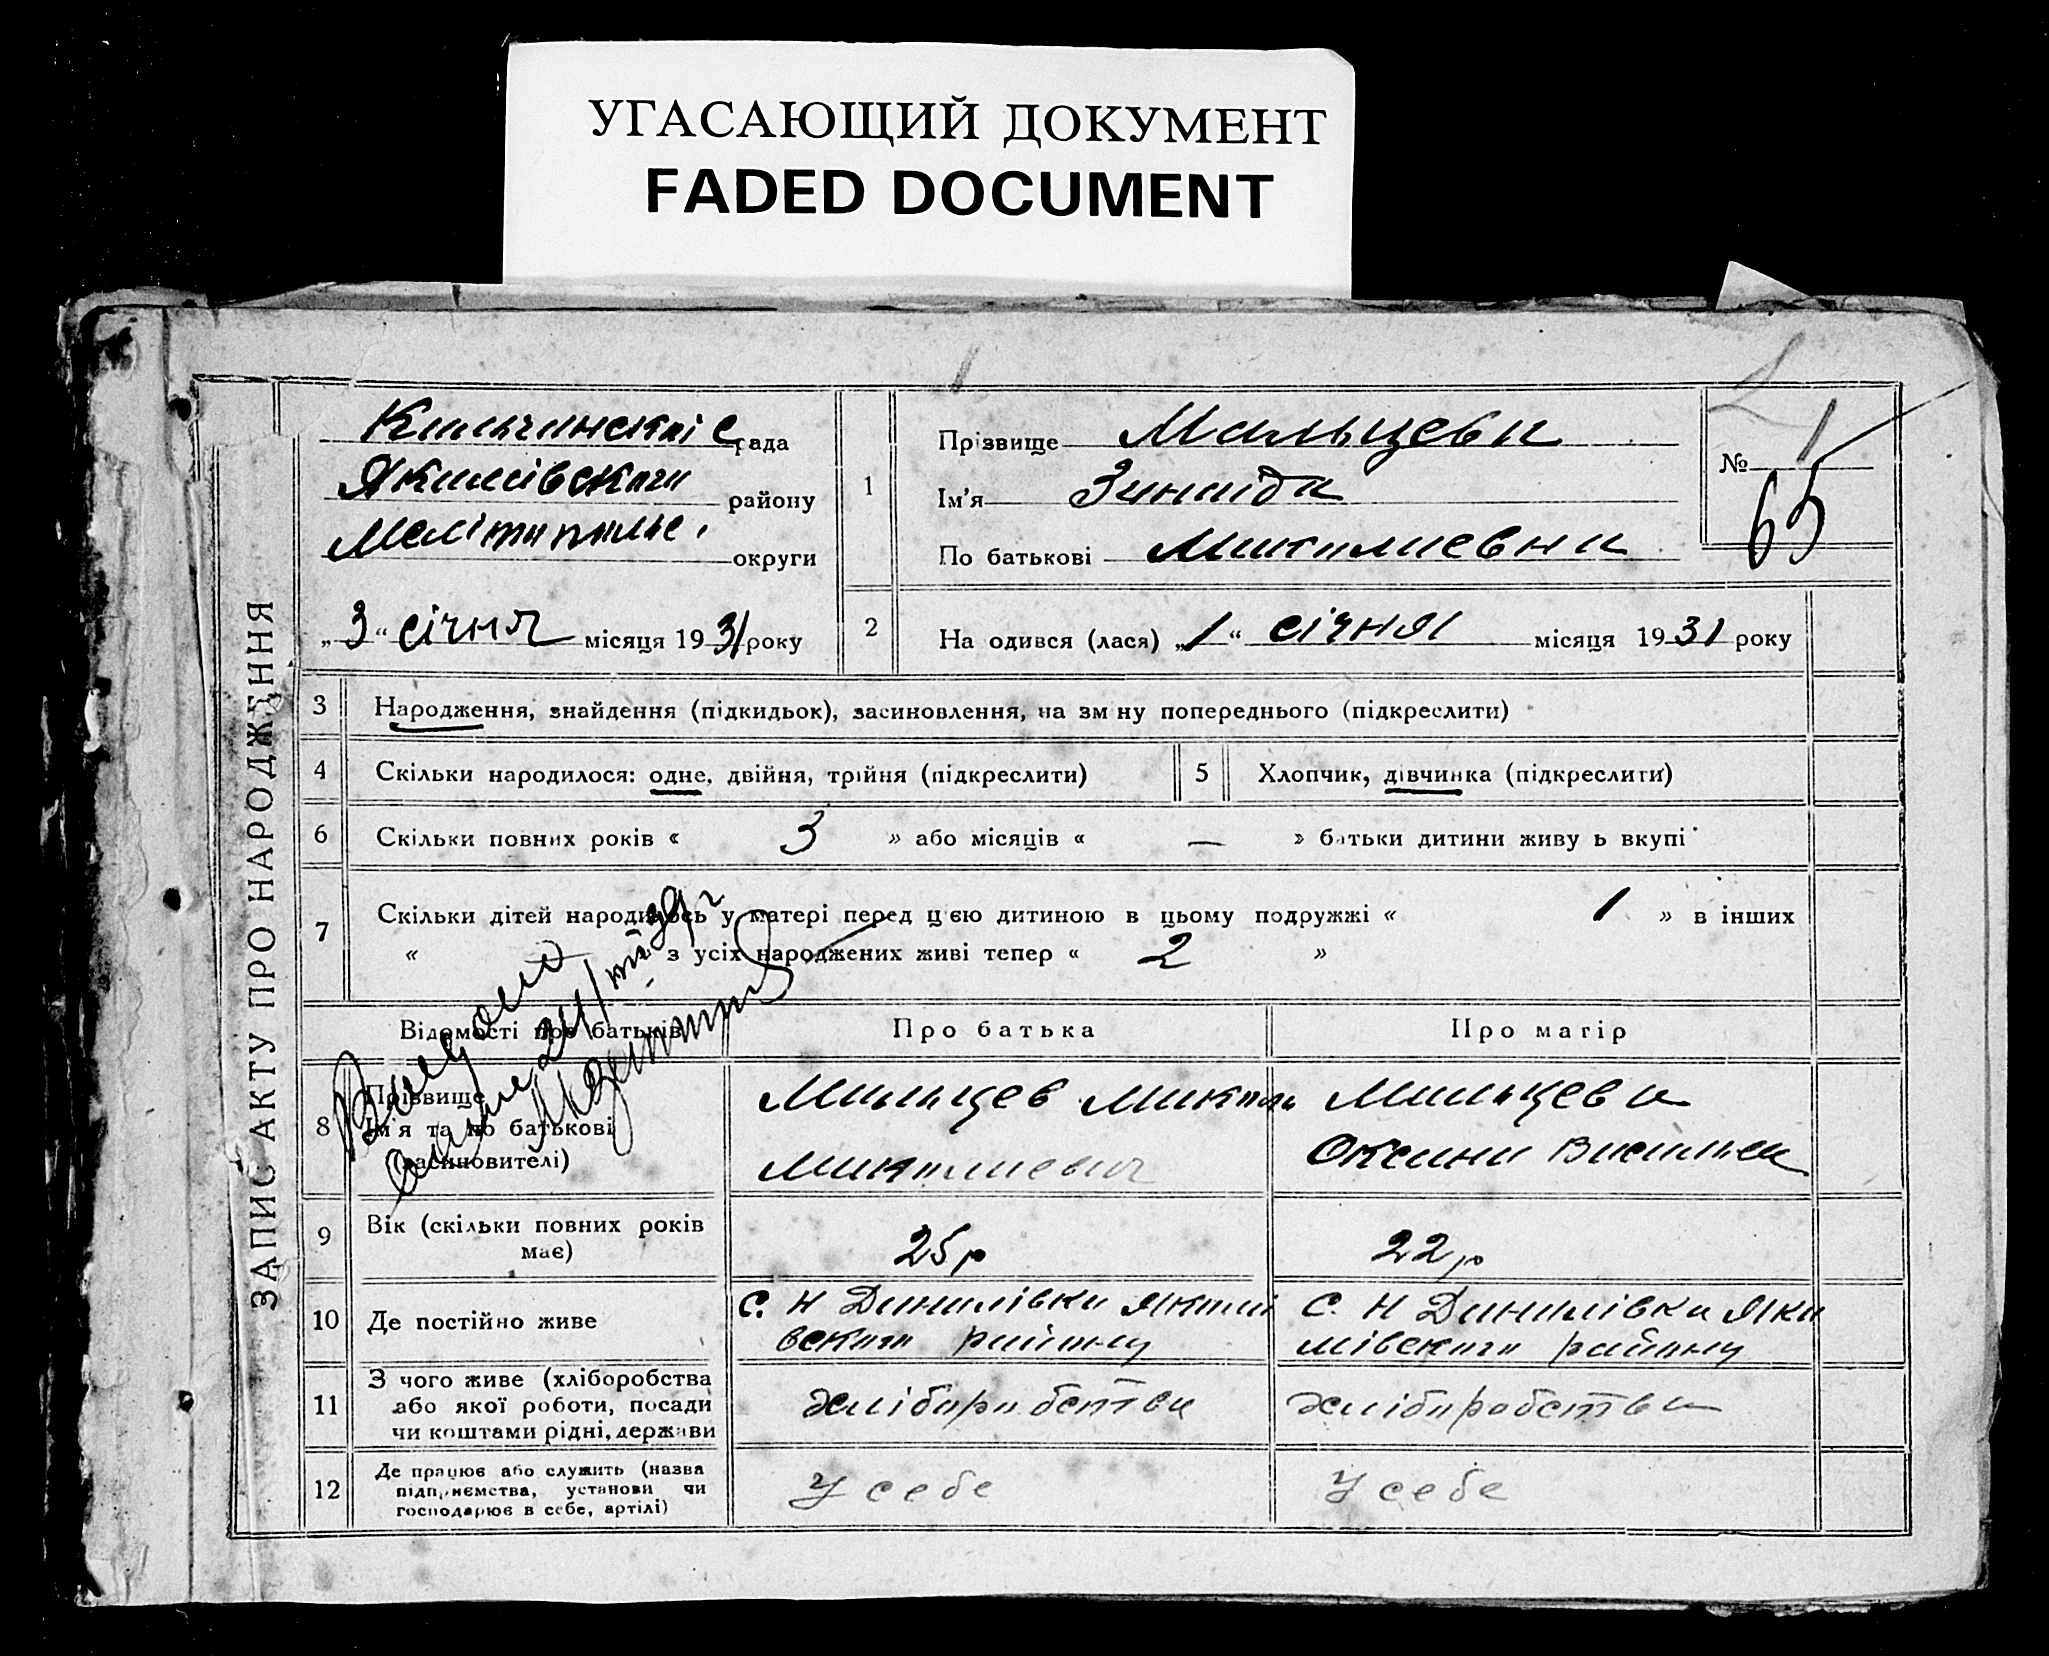 УГАСАЮЩИЙ ДОКУМЕНТ
FADED DOCUMENT
ЗАПИС АКТУ ПРО НАРОДЖЕННЯ
рада
Якимівського району
Мелітопольс. округи
„3“ січня місяця 1931 року
1
Прізвище Мальцева
Ім'я Зинаіда
По батькові Миколаєвна
№ 1
65
2 На одився (лася) „1“ січня місяця 1931 року
3 Народження, знайдення (підкидьок), засиновлення, на зм ну попереднього (підкреслити)
4 Скільки народилося: одне, двійня, трійня (підкреслити)
5 Хлопчик, дівчинка (підкреслити)
6 Скільки повних років « 3 » або місяців « — » батьки дитини живу ь вкупі
7 Скільки дітей народилось у матері перед цією дитиною в цьому подружжі « 1 » в інших
« — з усіх народжених живі тепер « 2 »
Відомості про батьків
Про батька
Про матір
8 Прізвище
Ім'я та по батькові
(засиновителі)
Мальцев Микола
Миколаевич
Мальцева
Оксана Василье
9 Вік (скільки повних років
має)
25 р
22 р
10 Де постійно живе
С. Н Данилівка Якимі
вского району
С. Н Данилівка Яки
мівского району
11 З чого живе (хліборобства
або якої роботи, посади
чи коштами рідні, держави
хліборобства
хліборобства
12 Де працює або служить (назва
підприємства, установи чи
господарює в себе, артілі)
У себе
У себе